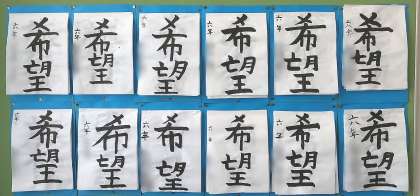 六年
希望
六年
希望
六年
希望
六年
希望
六年
希望
六年
希望
希望
六年
希望
六年
希望
希望
六年
希望
六年
希望